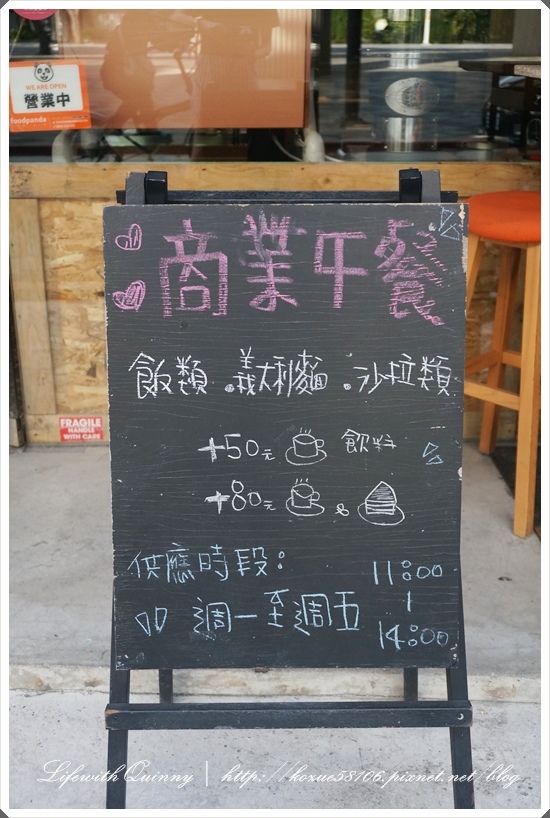 WE ARE OPEN
營業中
foodpanda
商業午餐
飯類.義大利麵.沙拉類
+50元 飲料
+80元 &
FRAGILE
HANDLE
WITH CARE
供應時段:
11:00
週一至週五 |
14:00
Lifewith Quinny | http://kozue58106.pixnet.net/blog